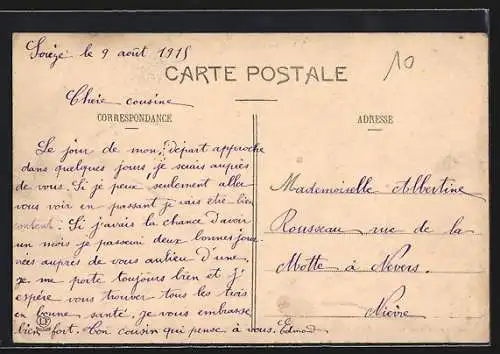 Sorèze le 9 août 1915
10
CARTE POSTALE
Chère cousine
CORRESPONDANCE
ADRESSE
Le jour de mon départ approche
dans quelques jours je serais auprès
de vous. Si je peux seulement aller
vous voir en passant je vais être bien
content. Si j'avais la chance d'avoir
un mois je passerai deux bonnes jour
nées auprès de vous au lieu d'une,
je me porte toujours bien et j'
espère vous trouver tous les trois
en bonne santé, je vous embrasse
bien fort. Ton cousin qui pense à vous. Edmond
Mademoiselle Albertine
Rousseau rue de la
Motte à Nevers.
Nièvre